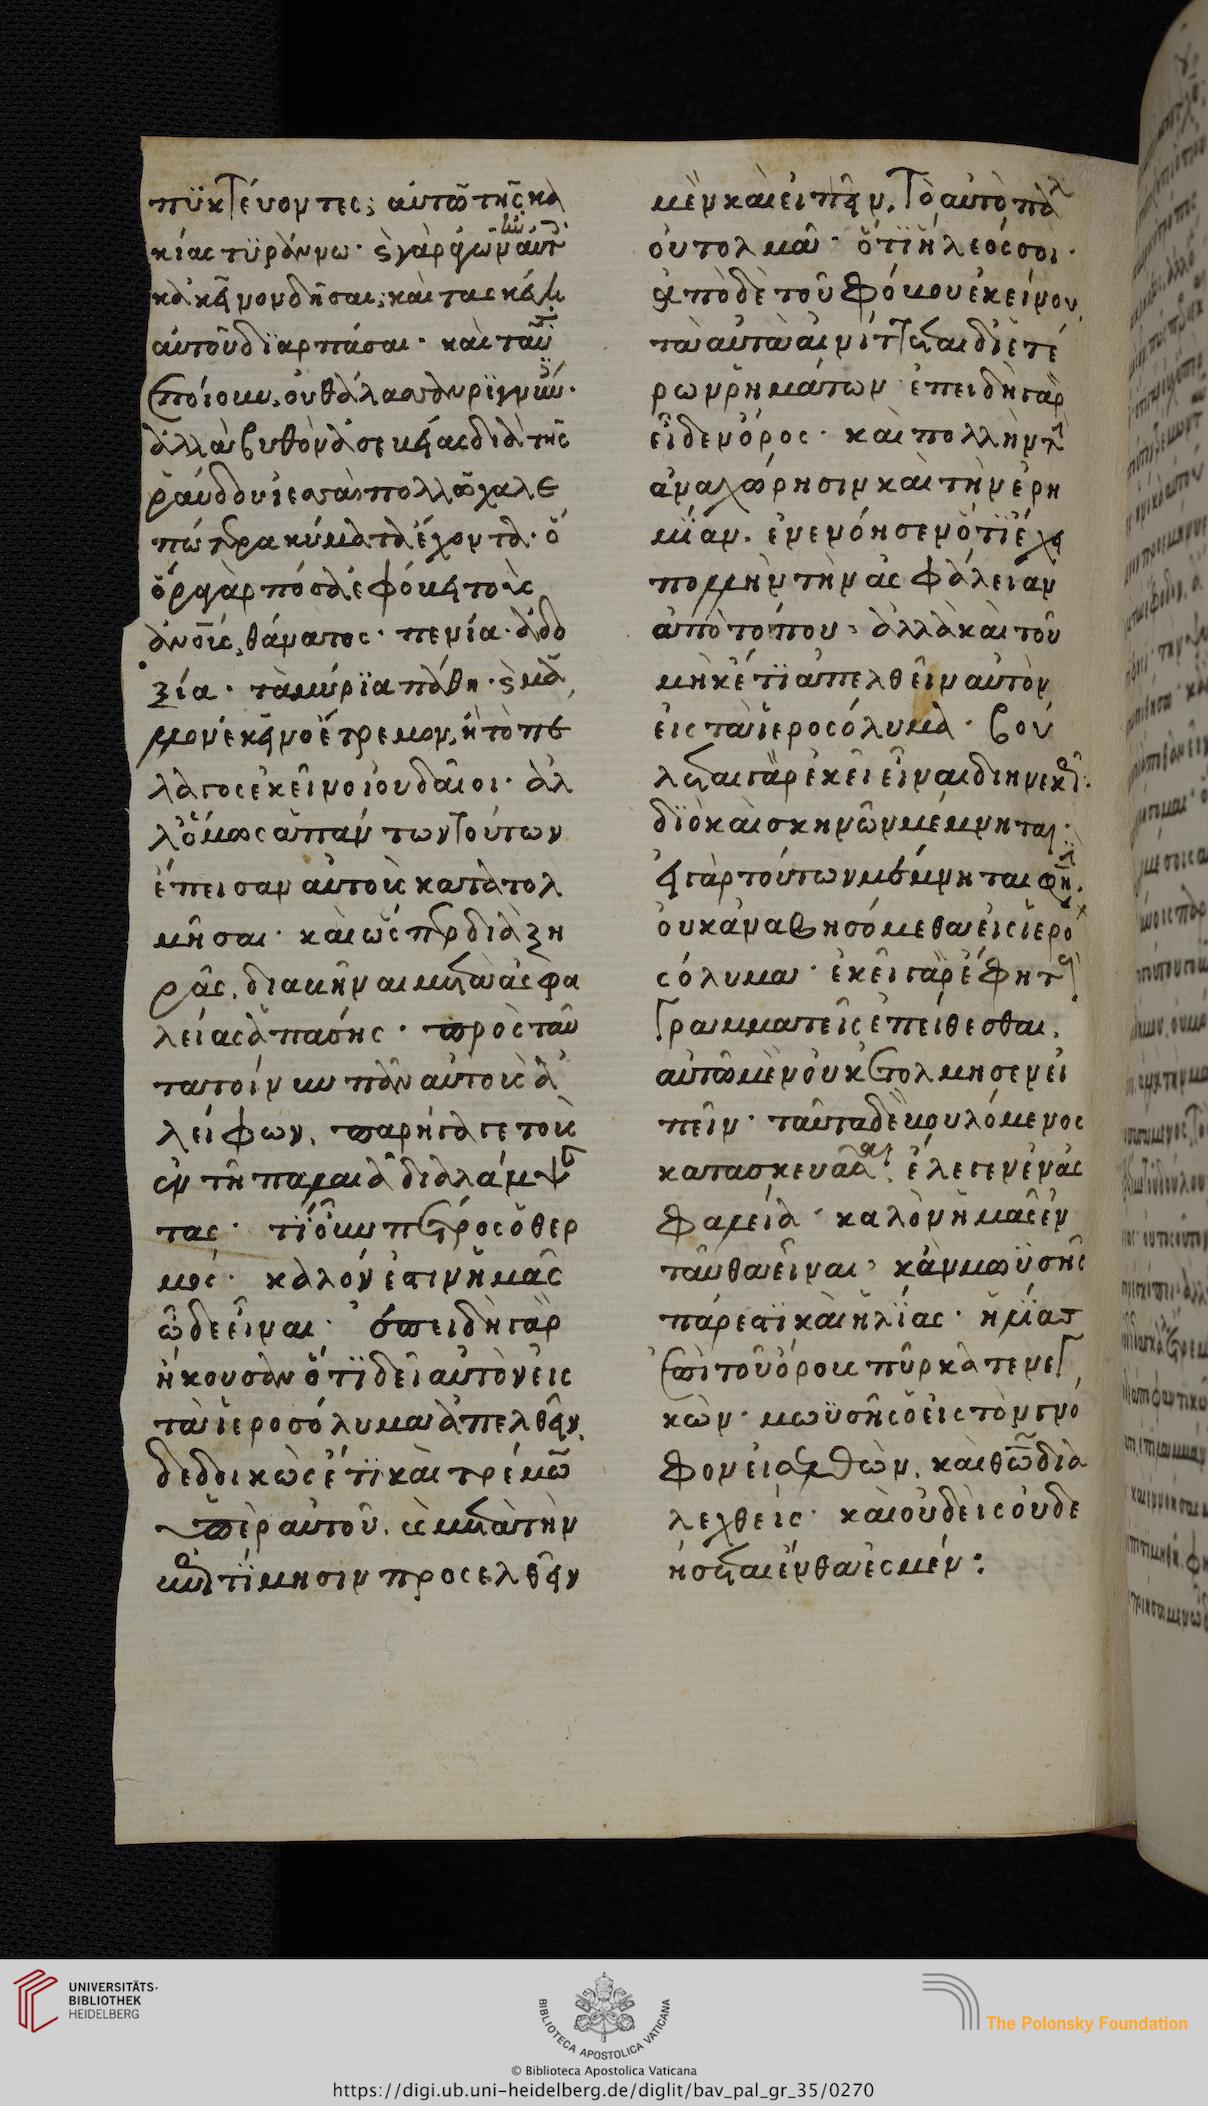 πϋκτέυοντες; αὐτῶ τῆς κα
κίας τϋράννω· ϗ γὰρ
κἀκεῖνον δῆσαι; καὶ τὰ σκέυη
αὐτοῦ διαρπάσαι· καὶ ταῦτ
ἐποίουν, οὐ θάλασσαν ῥιγνύντες·
ἀλλὰ βυθὸν ἀσεβείας διὰ τῆς
ῥάβδου ἰεσσαὶ πολλῶ χαλε
πώτερα κύματα ἔχοντα· ὅ
ὅρα γὰρ πόσα ἐφόβει τοὺς
ἀνους, θάνατος· πενία· ἀδο
ξία· τὰ μύρϊα πάθη· ϗ μᾶλ
λον ἐκεῖνο ἔτρεμον, ἢ τὸ πέ
λαγος ἐκεῖνο ἰουδαῖοι· ἀλ
λ' ὅμως ἁπάντων τούτων
ἔπεισαν αὐτοὺς κατατολ
μῆσαι· καὶ ὥσπερ διὰ ξη
ρᾶς, διαβῆναι μετὰ ἀσφα
λείας ἁπάσης· πρὸς ταῦ
τα τοίνυν πάν αὐτοὺς ἀ
λείφων, παρήγαγε τοὺς
ἐν τῆ παλαιᾶ διαλάμψαν
τας· τί οὖν πέτρος ὁ θερ
μός· καλόν ἐστιν ἡμᾶς
ὧδε εἶναι· ἐπειδὴ γὰρ
ἤκουσαν ὅτϊ δεῖ αὐτὸν εἰς
τὰ ἱεροσόλυμα ἀπελθεῖν,
δεδοικὼς ἔτϊ καὶ τρέμων
ὑπὲρ αὐτοῦ, μετὰ τὴν
ἐπιτίμησιν προσελθεῖν
μὲν καὶ εἰπεῖν, τὸ αὐτὸ πάλ
οὐ τολμᾶ· ὅτϊ ἥλεός σοι·
ἀπὸ δὲ τοῦ φόβου ἐκείνου,
τὰ αὐτὰ αἰνίττεται δι ἑτέ
ρων ῥημάτων· ἐπειδὴ γὰρ
εἶδεν ὄρος· καὶ πολλὴν τ
ἀναχώρησιν καὶ τὴν ἐρη
μΐαν. ἐνενόησεν ὅτϊ ἔχει
πολλὴν τὴν ἀσφάλειαν
ἀπὸ τόπου, ἀλλὰ καὶ τοῦ
μηκέτϊ ἀπελθεῖν αὐτὸν
εἰς τὰ ἱεροσόλυμα· βού
λεται γὰρ ἐκεῖ εἶναι διηνεκῶς·
διὸ καὶ σκηνῶν μέμνηται·
εἰ γὰρ τούτων μέμνηται φη.
οὐκ ἀναβησόμεθα εἰς ἱερο
σόλυμα· ἐκεῖ γὰρ ἔφη τ
γραμματεῖς ἐπιθέσθαι.
αὐτῶ μὲν οὐκ ἐτόλμησεν εἰ
πεῖν· ταῦτα δὲ βουλόμενος
κατασκευάσαι· ἔλεγεν ἐν ἀσ
φαλεία· καλὸν ἡμᾶς ἐν
ταῦθα εἶναι· κἂν μωϋσῆς
πάρεστϊ καὶ ἠλΐας· ἠλΐας
ἐπὶ τοῦ ὄρους πῦρ κατενεγ
κών· μωϋσῆς ὁ εἰς τὸν γνό
φον εἰσελθών, καὶ θῶ δια
λεχθείς· καὶ οὐδεὶς οὐδε
ἥσεται ἔνθα ἐσμέν:
UNIVERSITÄTS-
BIBLIOTHEK
HEIDELBERG
BIBLIOTECA APOSTOLICA VATICANA
The Polonsky Foundation
© Biblioteca Apostolica Vaticana
https://digi.ub.uni-heidelberg.de/diglit/bav_pal_gr_35/0270